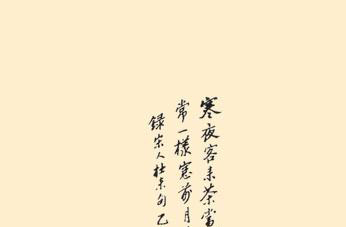 寒夜客来茶當
常一樣窓前月
録宋人杜耒句乙